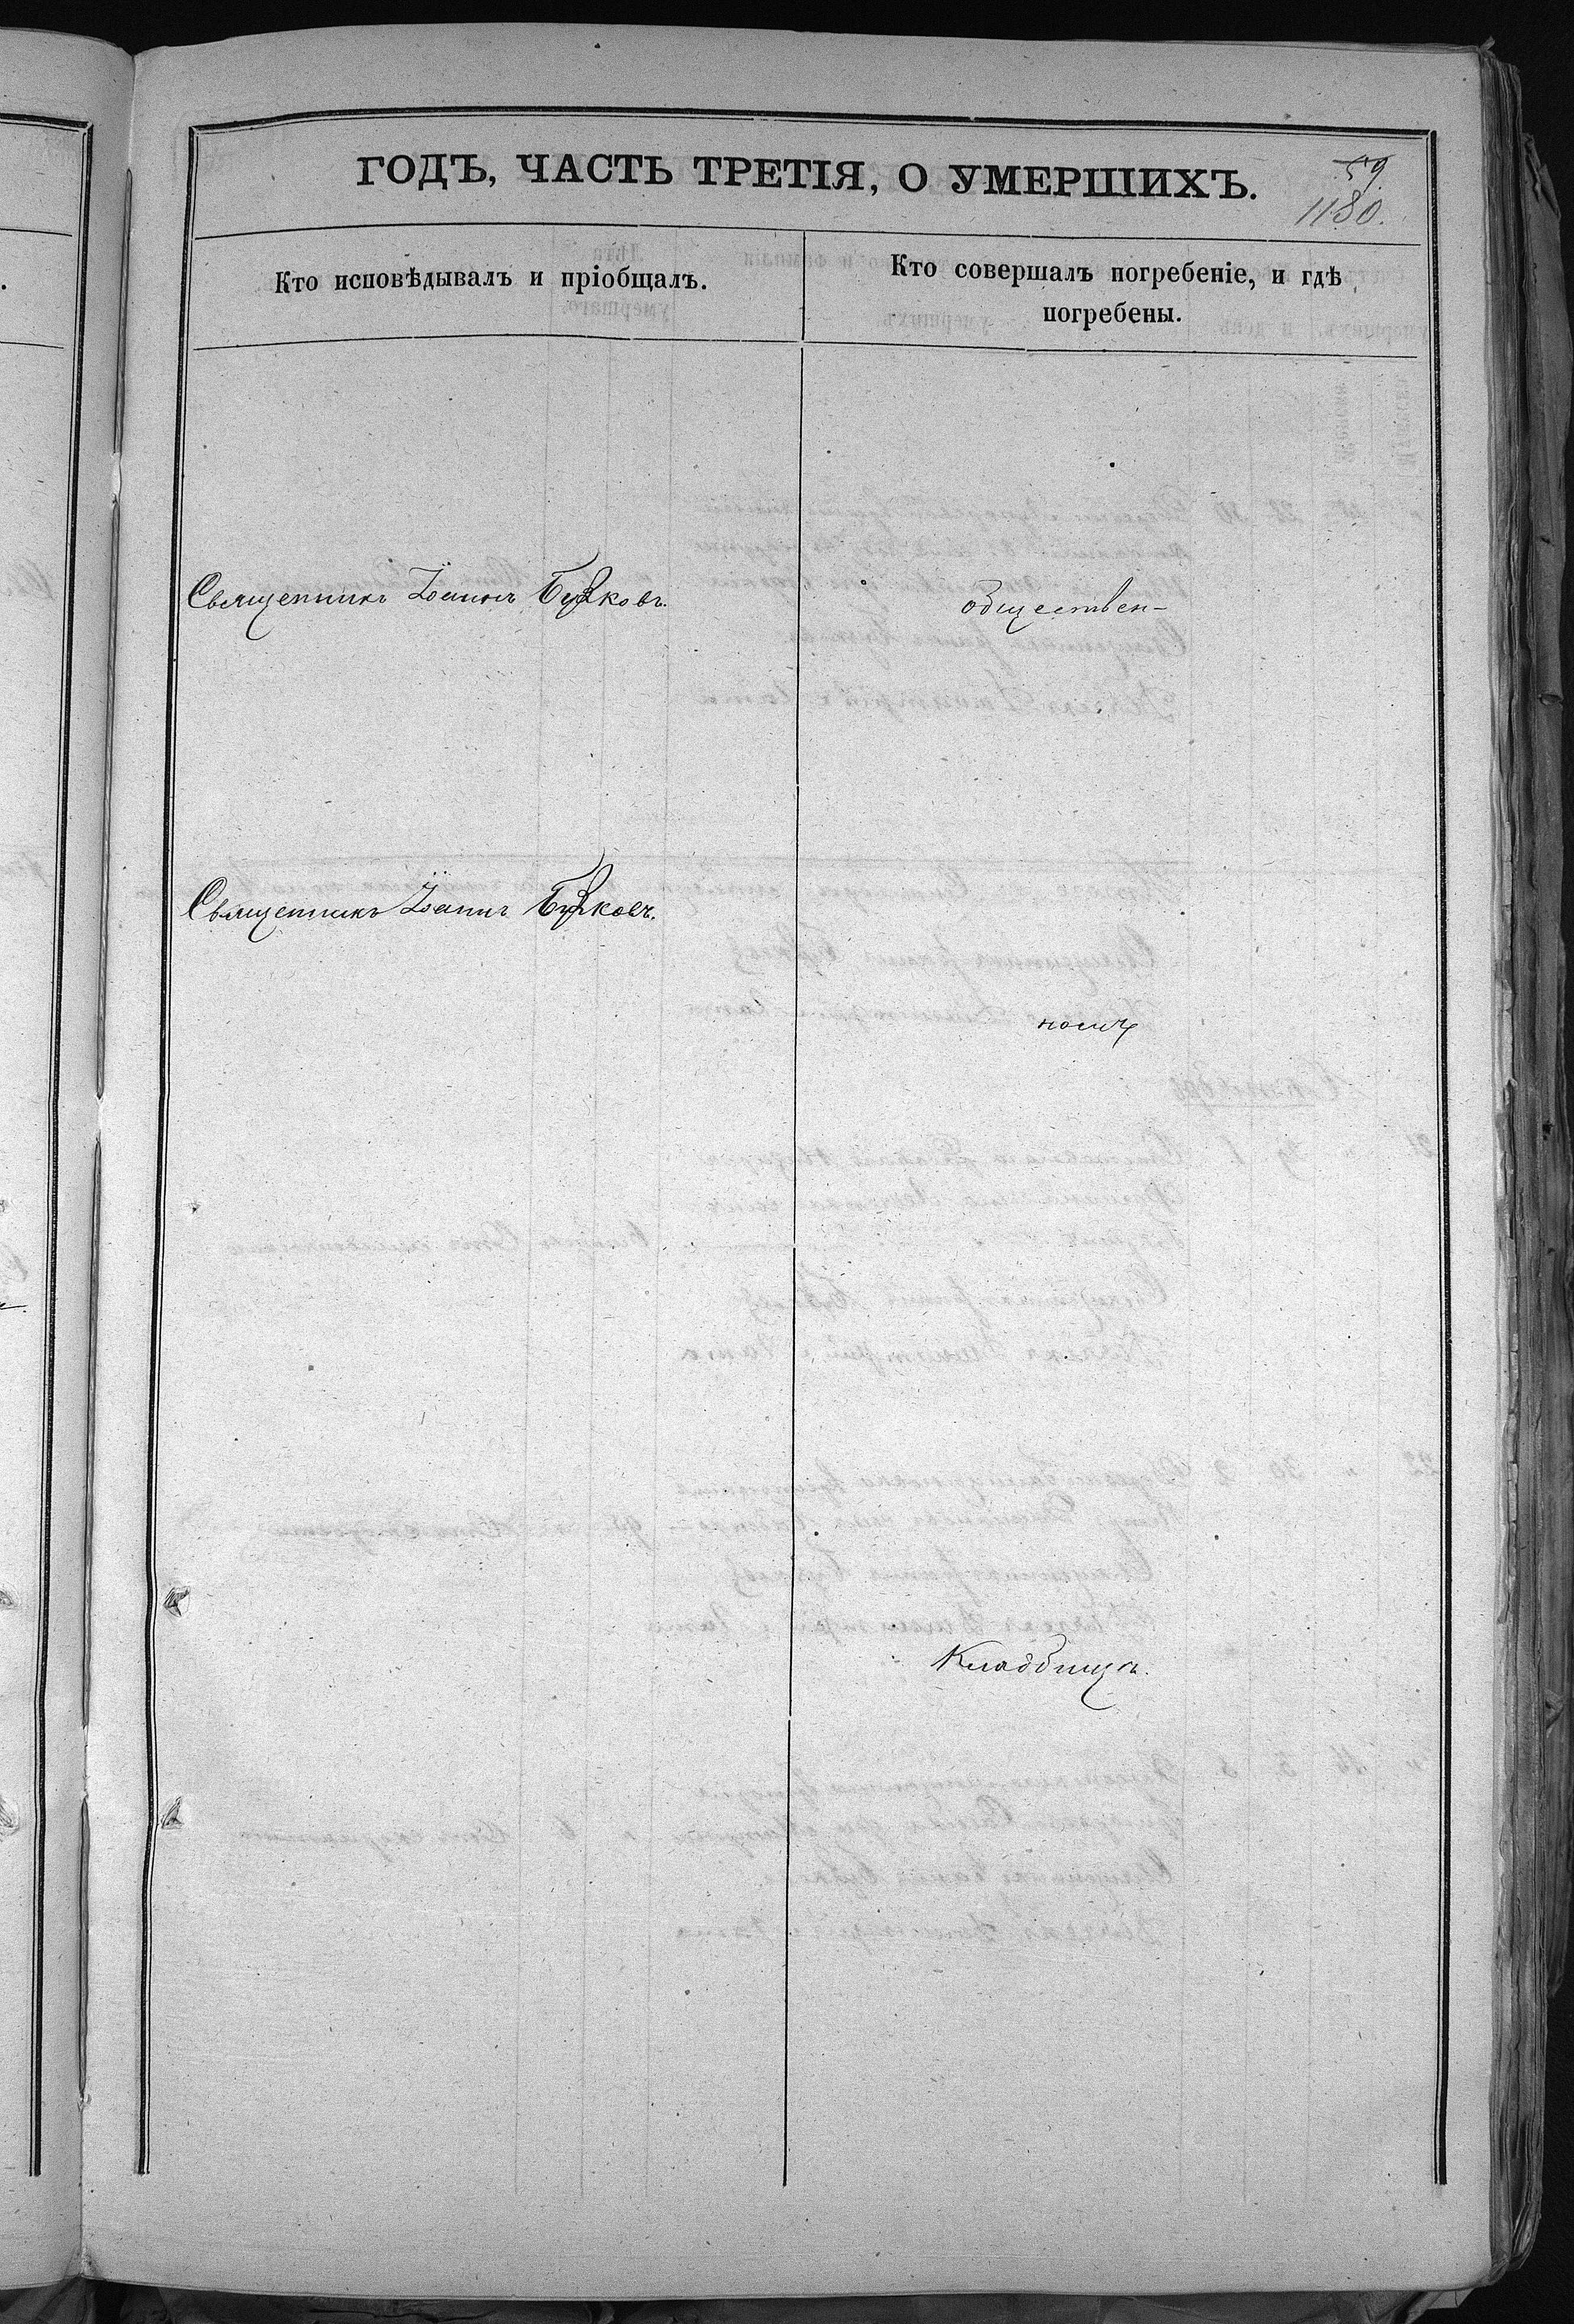 ГОДЪ, ЧАСТЬ ТРЕТІЯ, О УМЕРШИХЪ.
59.
1180.
Кто исповѣдывалъ и пріобщалъ.
Кто совершалъ погребеніе, и гдѣ
погребены.
Священникъ Іоаннъ
обществен-
Священникъ Іоаннъ
номъ
Кладбищѣ.